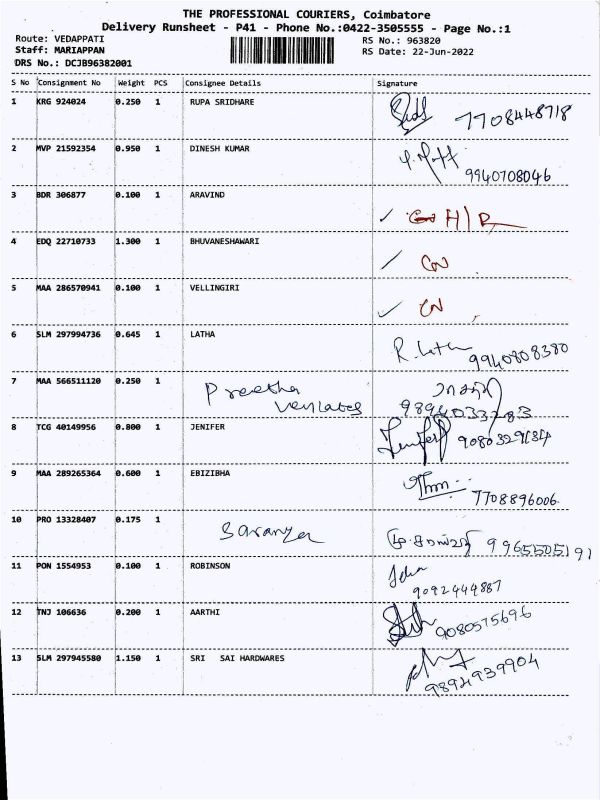 THE PROFESSIONAL COURIERS, Coimbatore
Delivery Runsheet - P41 - Phone No.:0422-3505555 - Page No.:1
Route: VEDAPPATI RS No.: 963820
Staff: MARIAPPAN RS Date: 22-Jun-2022
DRS No.: DCJB96382001
S No Consignment No Weight PCS Consignee Details Signature
1 KRG 924024 0.250 1 RUPA SRIDHARE 7708448718
2 MVP 21592354 0.950 1 DINESH KUMAR
9940708046
3 BDR 306877 0.100 1 ARAVIND
✓ H/R
4 EDQ 22710733 1.300 1 BHUVANESHAWARI
✓ CN
5 MAA 286570941 0.100 1 VELLINGIRI
✓ CN
6 SLM 297994736 0.645 1 LATHA
R. Latha 9940808380
7 MAA 566511120 0.250 1 Preetha
9894033283
8 TCG 40149956 0.800 1 JENIFER
Jenifer
9 MAA 289265364 0.600 1 EBIZIBHA
7708896006
10 PRO 13328407 0.175 1 Saranya
9965505191
11 PON 1554953 0.100 1 ROBINSON
9092444887
12 TNJ 106636 0.200 1 AARTHI
9080575696
13 SLM 297945580 1.150 1 SRI SAI HARDWARES
9894939904